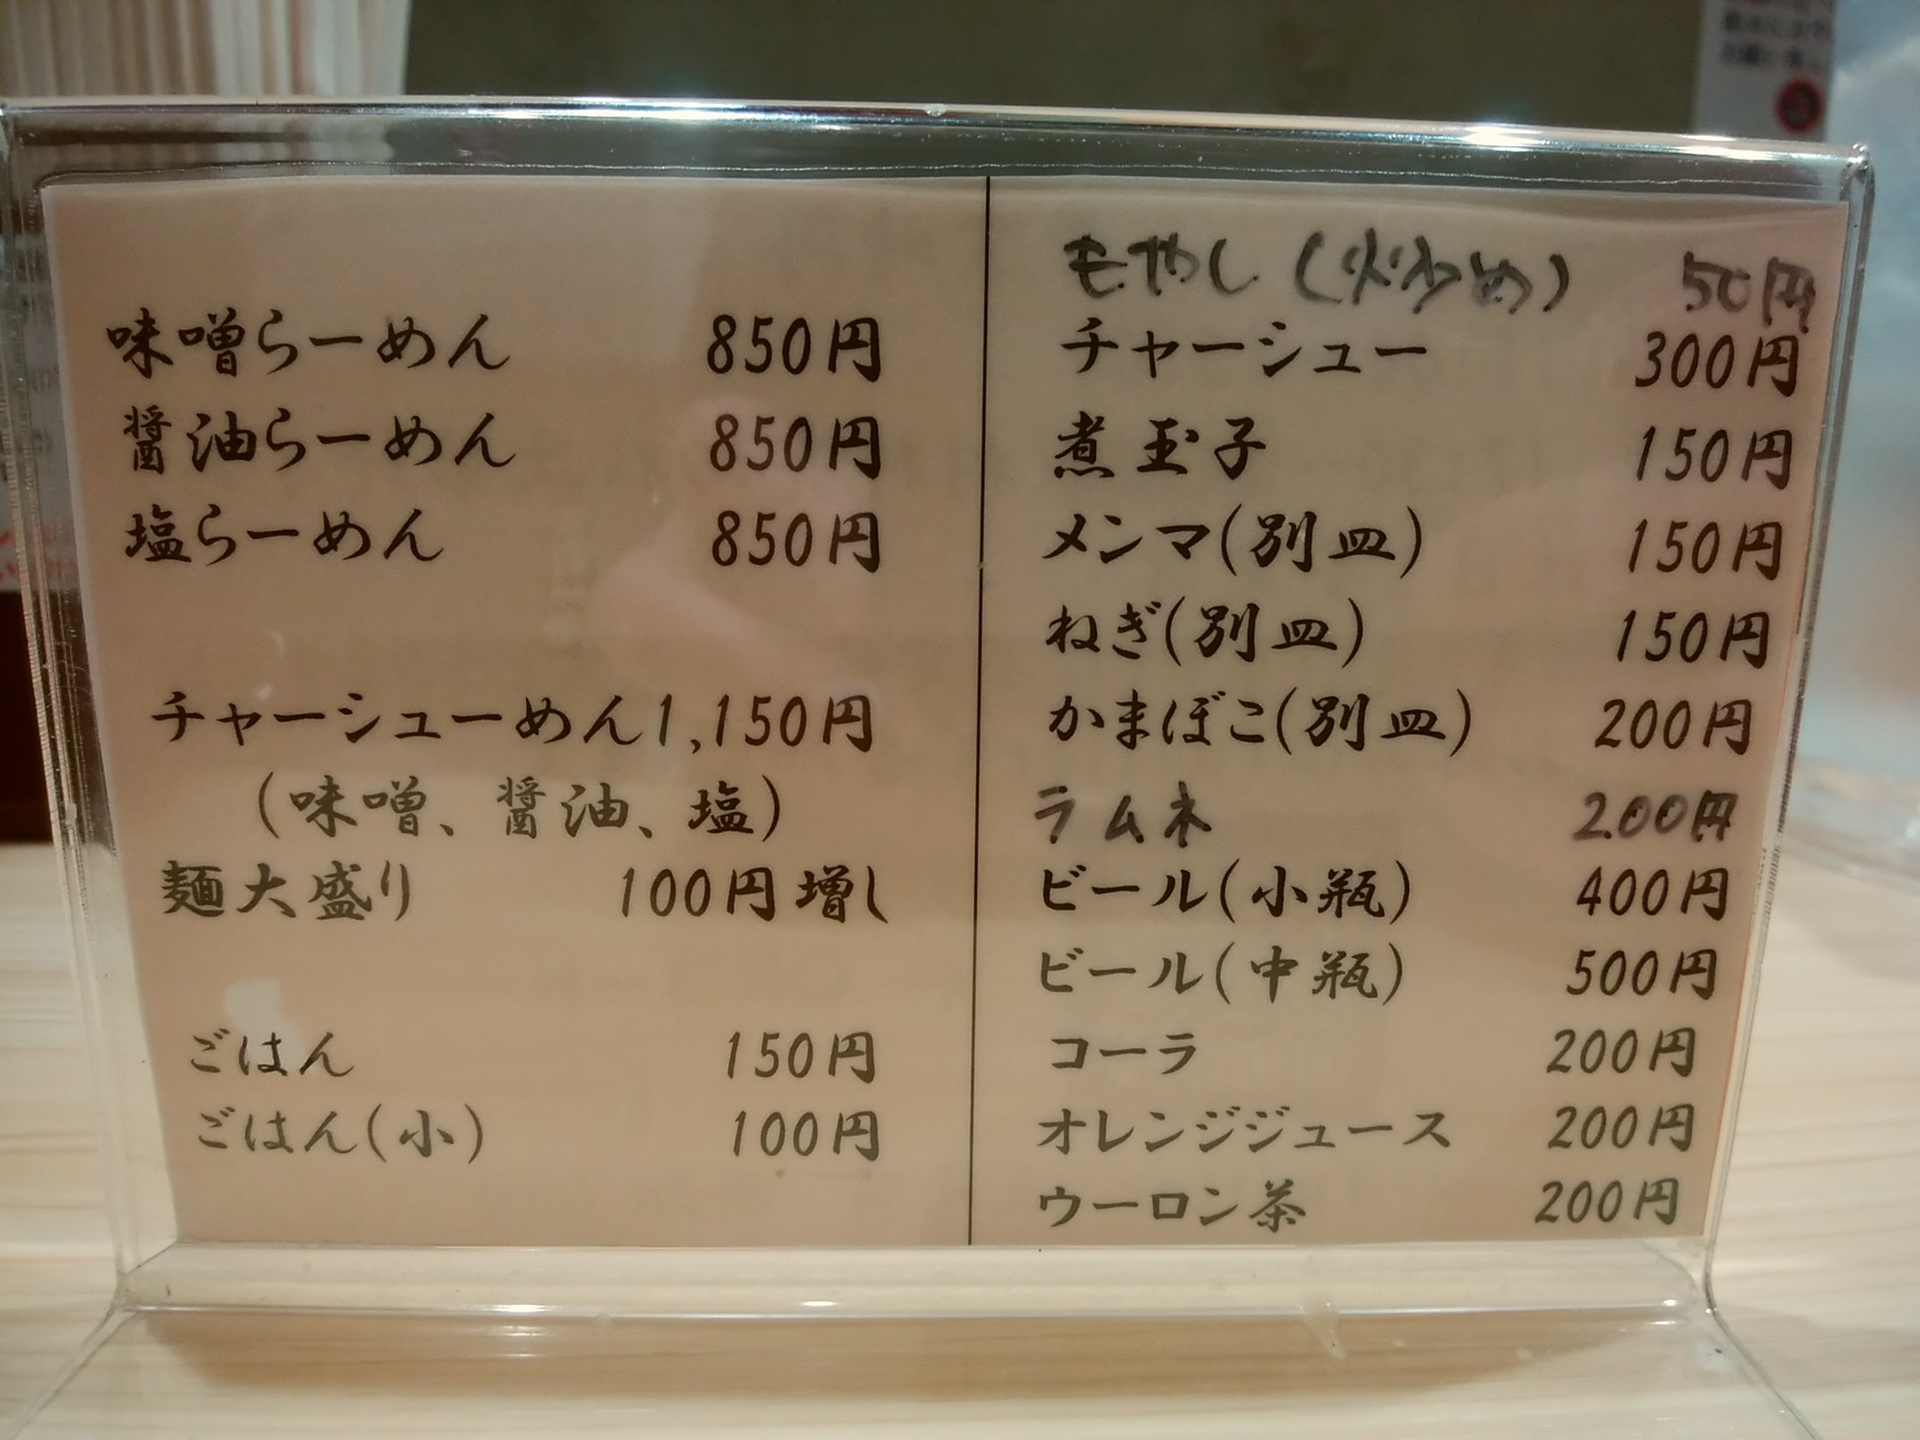 味噌らーめん 850円
醤油らーめん 850円
塩らーめん 850円
チャーシューめん1,150円
(味噌、醤油、塩)
麺大盛り 100円増し
ごはん 150円
ごはん(小) 100円
もやし(炒め) 50円
チャーシュー 300円
煮玉子 150円
メンマ(別皿) 150円
ねぎ(別皿) 150円
かまぼこ(別皿) 200円
ラムネ 200円
ビール(小瓶) 400円
ビール(中瓶) 500円
コーラ 200円
オレンジジュース 200円
ウーロン茶 200円